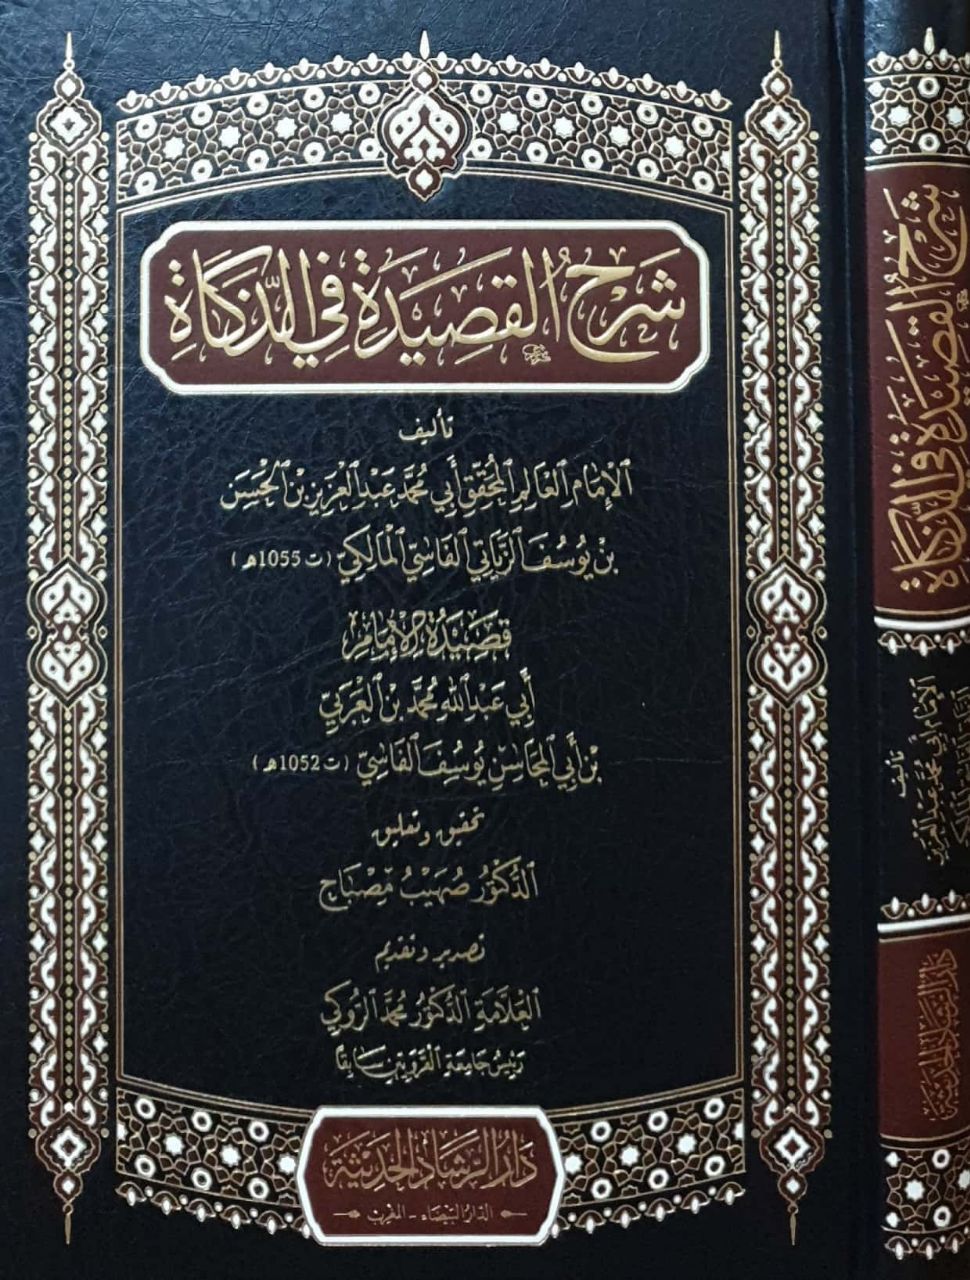 شَرْحُ القَصِيدَةِ فِي الذَّكَاةِ
تأليف
الإِمَامِ العَالِمِ المُحَقِّقِ أَبِي مُحَمَّد عَبْدِ العَزِيزِ بْنِ الحَسَنِ
بْنِ يُوسُفَ الزَّيَاتِي الفَاسِيِّ المَالِكِيِّ (ت 1055هـ)
قَصِيْدَةُ الإِمَامِ
أَبِي عَبْدِ اللهِ مُحَمَّد بْنِ العَرَبِيِّ
بْنِ أَبِي المَحَاسِنِ يُوسُفَ الفَاسِيِّ (ت 1052هـ)
تحقيق وتعليق
الدُّكْتُورُ صُهَيْبُ مِصْبَاح
تصدير وتقديم
العَلَّامَةِ الدُّكْتُورُ مُحَمَّد الرُّوكِي
رَئِيسُ جَامِعَةِ القَرَوِيِّينَ سَابِقًا
دَارُ الرَّشَادِ الحَدِيثَةِ
الدار البيضاء - المغرب
شَرْحُ القَصِيدَةِ فِي الذَّكَاةِ
تأليف
الإِمَامِ أَبِي مُحَمَّد عَبْدِ العَزِيزِ
دَارُ الرَّشَادِ الحَدِيثَةِ